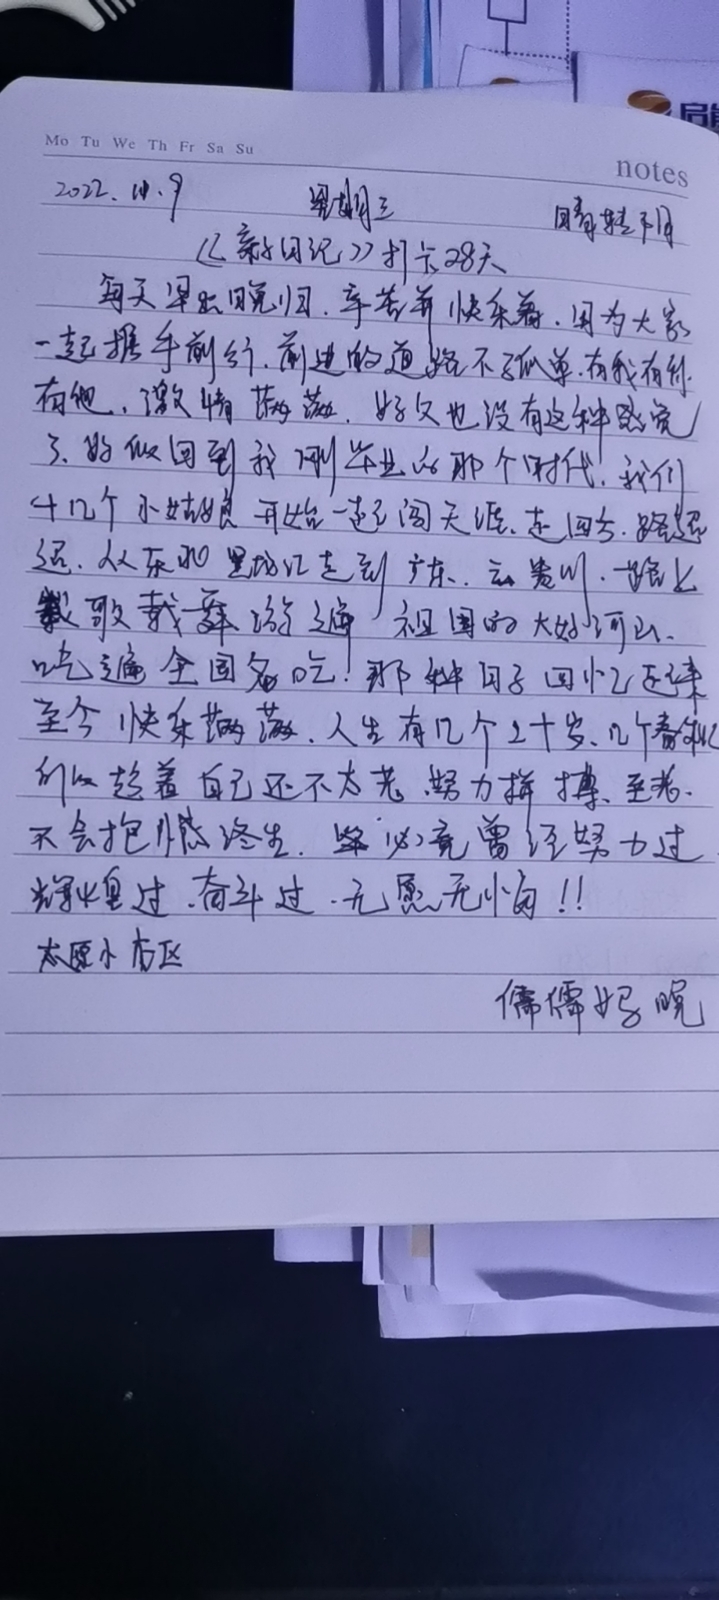 Mo Tu We Th Fr Sa Su
notes
2022.11.9 星期三 晴转阴
《新日记》打卡28天
每天早出晚归.辛苦并快乐着.因为大家
一起携手前行.前进的道路不孤单.有我有你
有他.激情满满.好久也没有这种感觉
了.好似回到我刚毕业的那个时代.我们
十几个小姑娘开始一起闯天涯.走四方.路迢
迢.从东北黑龙江走到广东.云贵川.一路上
载歌载舞游遍祖国的大好河山.
吃遍全国名吃!那种日子回忆起来
至今快乐满满.人生有几个二十岁.几个春秋
所以趁着自己还不太老.努力拼搏.至老.
不会抱憾终生.必竟曾经努力过
辉煌过.奋斗过.无愿无悔!!
太原小店区
儒儒妈 晚